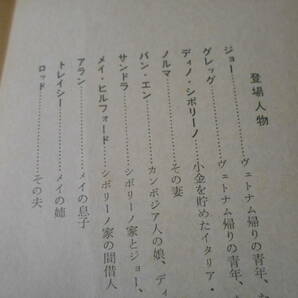 登場人物
ジョー……………ヴェトナム帰りの青年、
グレッグ……………ヴェトナム帰りの青年、
ディノ・シポリーノ……小金を貯めたイタリア・
ノルマ……………その妻
バン・エン……………カンボジア人の娘、ディ
サンドラ……………シポリーノ家とジョー、
メイ・ヒルフォード……シポリーノ家の間借人
アラン……………メイの息子
トレイシー……………メイの姉
ロッド……………その夫